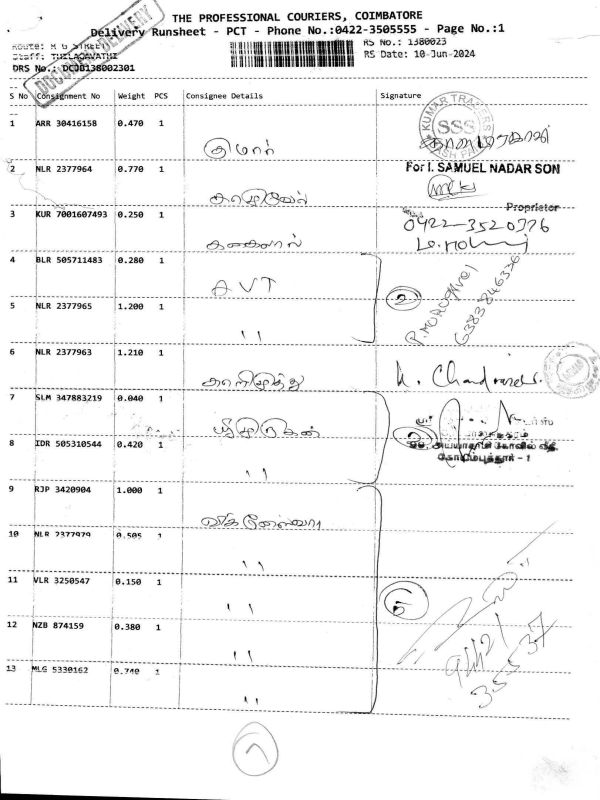 THE PROFESSIONAL COURIERS, COIMBATORE
Delivery Runsheet - PCT - Phone No.:0422-3505555 - Page No.:1
Route: M G STREET RS No.: 1380023
Staff: THILAGAVATHI RS Date: 10-Jun-2024
DRS No.: DCJD138002301
DOCUMENT DELIVERY
S No Consignment No Weight PCS Consignee Details Signature
KUMAR TRADERS
SSS
1 ARR 30416158 0.470 1
குமார்
2 NLR 2377964 0.770 1 For I. SAMUEL NADAR SON
Proprietor
3 KUR 7001607493 0.250 1 0422-3520776
4 BLR 505711483 0.280 1
AVT
2
P.MURUGAVEL
6383846336
5 NLR 2377965 1.200 1
''
6 NLR 2377963 1.210 1
காளிமுத்து
K. Chandrasek
7 SLM 347883219 0.040 1
ஸ்ரீமுருகன்
2
8 IDR 505310544 0.420 1
''
கோயமுத்தூர் - 1
9 RJP 3420904 1.000 1
விக்னேஸ்வரா
10 NLR 2377979 0.505 1
''
11 VLR 3250547 0.150 1
''
5
12 NZB 874159 0.380 1
''
94421
35537
13 MLG 5330162 0.740 1
''
7